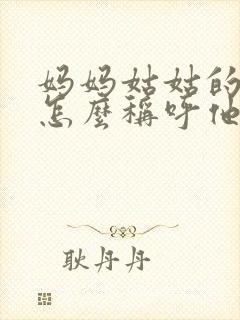 妈妈姑姑的
怎麽稱呼他
耿丹丹